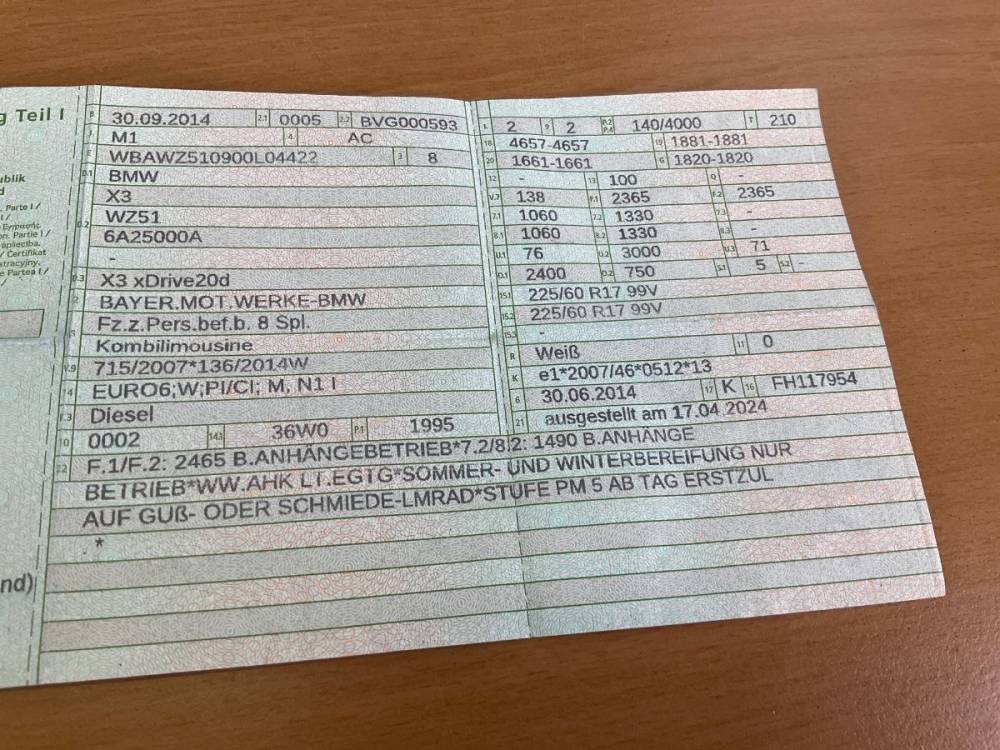 g Teil I
ublik
d
. Parte I /
on. Partie I /
apliecība.
/ Certifikat
stracyjny.
e Partea I /
nd)
B 30.09.2014 2.1 0005 2.2 BVG000593
J M1 4 AC
E WBAWZ510900L04422 3 8
D.1 BMW
X3
D.2 WZ51
6A25000A
-
D.3 X3 xDrive20d
2 BAYER.MOT.WERKE-BMW
5 Fz.z.Pers.bef.b. 8 Spl.
Kombilimousine
V.9 715/2007*136/2014W
14 EURO6;W;PI/CI; M, N1 I
P.3 Diesel
10 0002 14.1 36W0 P.1 1995
L 2 9 2 P.2 P.4 140/4000 T 210
18 4657-4657 19 1881-1881
20 1661-1661 G 1820-1820
12 - 13 100 Q -
V.7 138 F.1 2365 F.2 2365
7.1 1060 7.2 1330 7.3 -
8.1 1060 8.2 1330 8.3 -
U.1 76 U.2 3000 U.3 71
O.1 2400 O.2 750 S.1 5 S.2 -
15.1 225/60 R17 99V
15.2 225/60 R17 99V
15.3 -
R Weiß 11 0
K e1*2007/46*0512*13
6 30.06.2014 17 K 16 FH117954
21 ausgestellt am 17.04.2024
22 F.1/F.2: 2465 B.ANHÄNGEBETRIEB*7.2/8.2: 1490 B.ANHÄNGE
BETRIEB*WW.AHK LT.EGTG*SOMMER- UND WINTERBEREIFUNG NUR
AUF GUß- ODER SCHMIEDE-LMRAD*STUFE PM 5 AB TAG ERSTZUL
.*